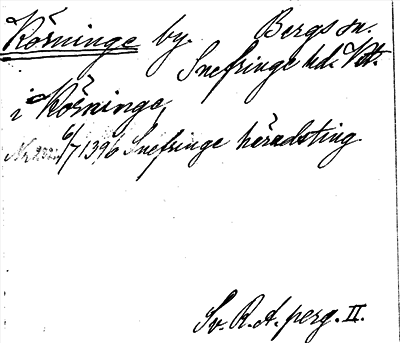 Körninge by. Bergs sn.
Snefringe hd. Vstl.
i Körninge
6/7 1396 Snefringe häradsting.
Sv. R. A. perg. II.